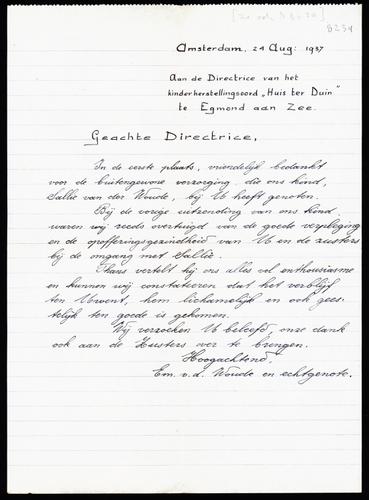 8234
Amsterdam, 24 Aug: 1937
Aan de Directrice van het
kinderherstellingsoord „Huis ter Duin”
te Egmond aan Zee.
Geachte Directrice,
In de eerste plaats, vriendelijk bedankt
voor de buitengewone verzorging, die ons kind,
Sallie van der Woude, bij U heeft genoten.
Bij de vorige uitzending van ons kind
waren wij reeds overtuigd van de goede verpleging
en de opofferingsgezindheid van U en de zusters
bij de omgang met Sallie.
Thans vertelt hij ons alles vol enthousiasme
en kunnen wij constateeren dat het verblijf
ten Uwent, hem lichamelijk en ook gees-
telijk ten goede is gekomen.
Wij verzoeken U beleefd, onze dank
ook aan de Zusters over te brengen.
Hoogachtend,
Em. v.d. Woude en echtgenote.